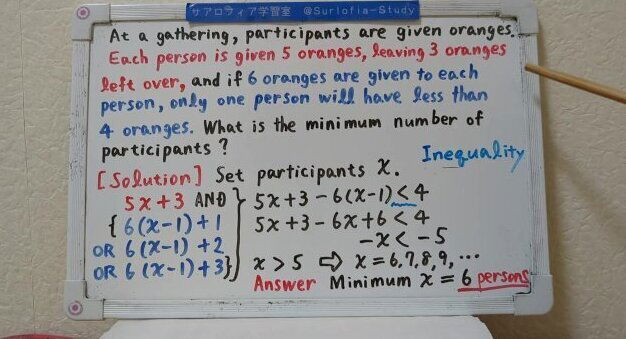 サアロフィア学習室 @Surlofia-Study
At a gathering, participants are given oranges.
Each person is given 5 oranges, leaving 3 oranges
left over, and if 6 oranges are given to each
person, only one person will have less than
4 oranges. What is the minimum number of
participants?
Inequality
[Solution] Set participants x.
5x+3 AND
{ 6(x-1)+1
OR 6(x-1)+2
OR 6(x-1)+3}
5x+3-6(x-1)<4
5x+3-6x+6<4
-x<-5
x>5 ⇨ x=6,7,8,9,…
Answer Minimum x=6 persons